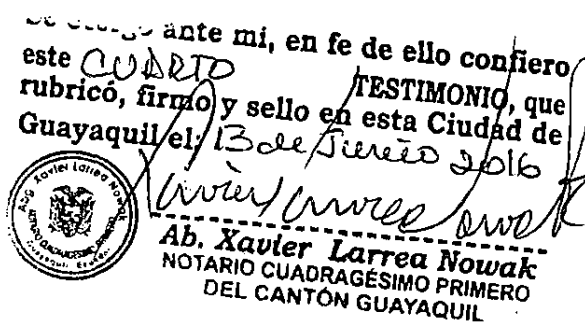 ante mi, en fe de ello confiero
este CUARTO
TESTIMONIO, que
rubricó, firmo y sello en esta Ciudad de
Guayaquil el; 13 de Junio 2016
Abg. Xavier Larrea Nowak
Guayaquil - Ecuador
Ab. Xavier Larrea Nowak
NOTARIO CUADRAGÉSIMO PRIMERO
DEL CANTÓN GUAYAQUIL